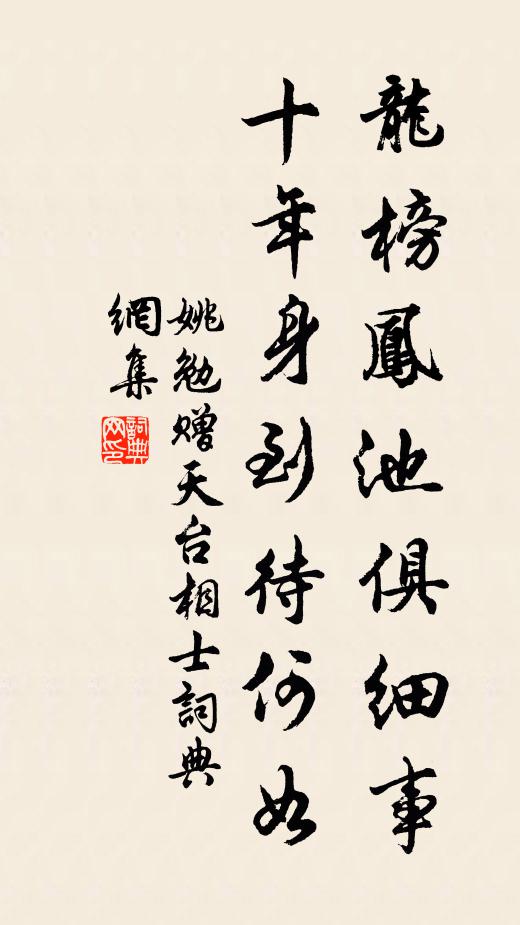 龍榜鳳池俱細事
十年身到待何如
姚勉贈天台相士詞典
網集
詞典網印